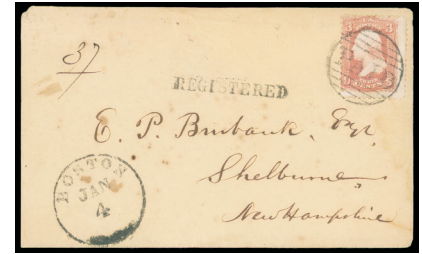 37
REGISTERED
E. P. Burbank, Esqr,
Shelburne,
New Hampshire
BOSTON
JAN
4